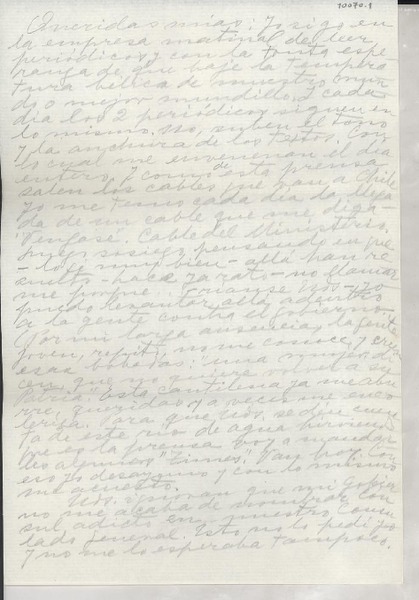 10070.1
Queridas mías: Yo sigo en
la empresa matinal de leer
periódicos y con la tonta espe-
ranza de que baje la tempera-
tura bélica de nuestro mun-
do o mejor mundillo. Y cada
día los 2 periódicos siguen en
lo mismo. No, suben el tono
y la anchura de los textos. Con
lo cual me envenenan el día
entero. Y como de esta prensa
salen los cables que van a Chile
yo me temo cada día la llega-
da de un cable que me diga:
"Véngase". Cable del Ministerio.
luego sosiego pensando en que
-lo sé muy bien- allá han re-
suelto -hace ya rato- no llamar-
me porque
puedo levantar allá adentro
a la gente contra el gobierno.
(Por mi larga ausencia, la gente
joven, repito, no me conoce y cree
esas bobadas: "una mujer
que no quiere volver a su
Patria". Esta cantilena ya me abu-
rre, queridas, y a veces me enco-
leriza. Para que Uds. se den cuen-
ta de este río de agua hirviendo
que es la prensa voy a mandar-
les algunos "Times". Tan hoy
yo desayuno y con lo mismo
me acuesto.
Uds. ignoran que mi Gobier-
no me acaba de nombrar Cón-
sul adicto en nuestro Consu-
lado General. Esto no lo pedí yo
y no me lo esperaba tampoco.